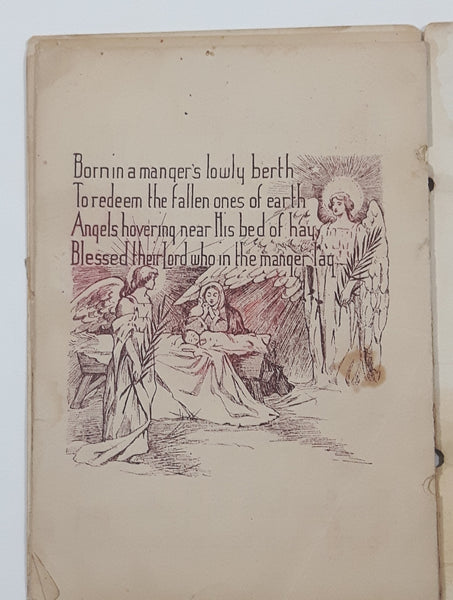 Born in a manger's lowly berth
To redeem the fallen ones of earth
Angels hovering near His bed of hay
Blessed their Lord who in the manger lay